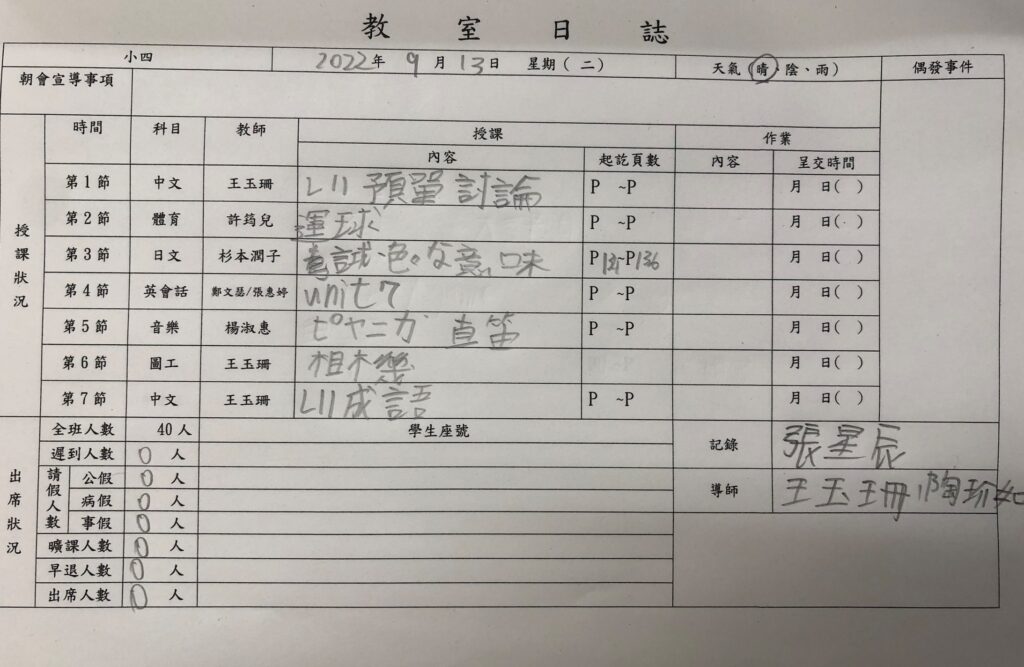 教室日誌
小四 2022年9月13日 星期(二) 天氣(晴、陰、雨) 偶發事件
朝會宣導事項
授課狀況
時間 科目 教師 授課 作業
內容 起訖頁數 內容 呈交時間
第1節 中文 王玉珊 L11 預單討論 P ~P 月 日( )
第2節 體育 許筠兒 運球 P ~P 月 日( )
第3節 日文 杉本潤子 試・色々な意味 P131~P136 月 日( )
第4節 英會話 鄭文瑟/張惠婷 unit7 P ~P 月 日( )
第5節 音樂 楊淑惠 ピヤニカ゛ 直笛 P ~P 月 日( )
第6節 圖工 王玉珊 月 日( )
第7節 中文 王玉珊 L11成語 P ~P 月 日( )
出席狀況
全班人數 40人 學生座號
遲到人數 0 人
請假人數
公假 0 人
病假 0 人
事假 0 人
曠課人數 0 人
早退人數 0 人
出席人數 0 人
記錄 張星辰
導師 王玉珊 陶珍如